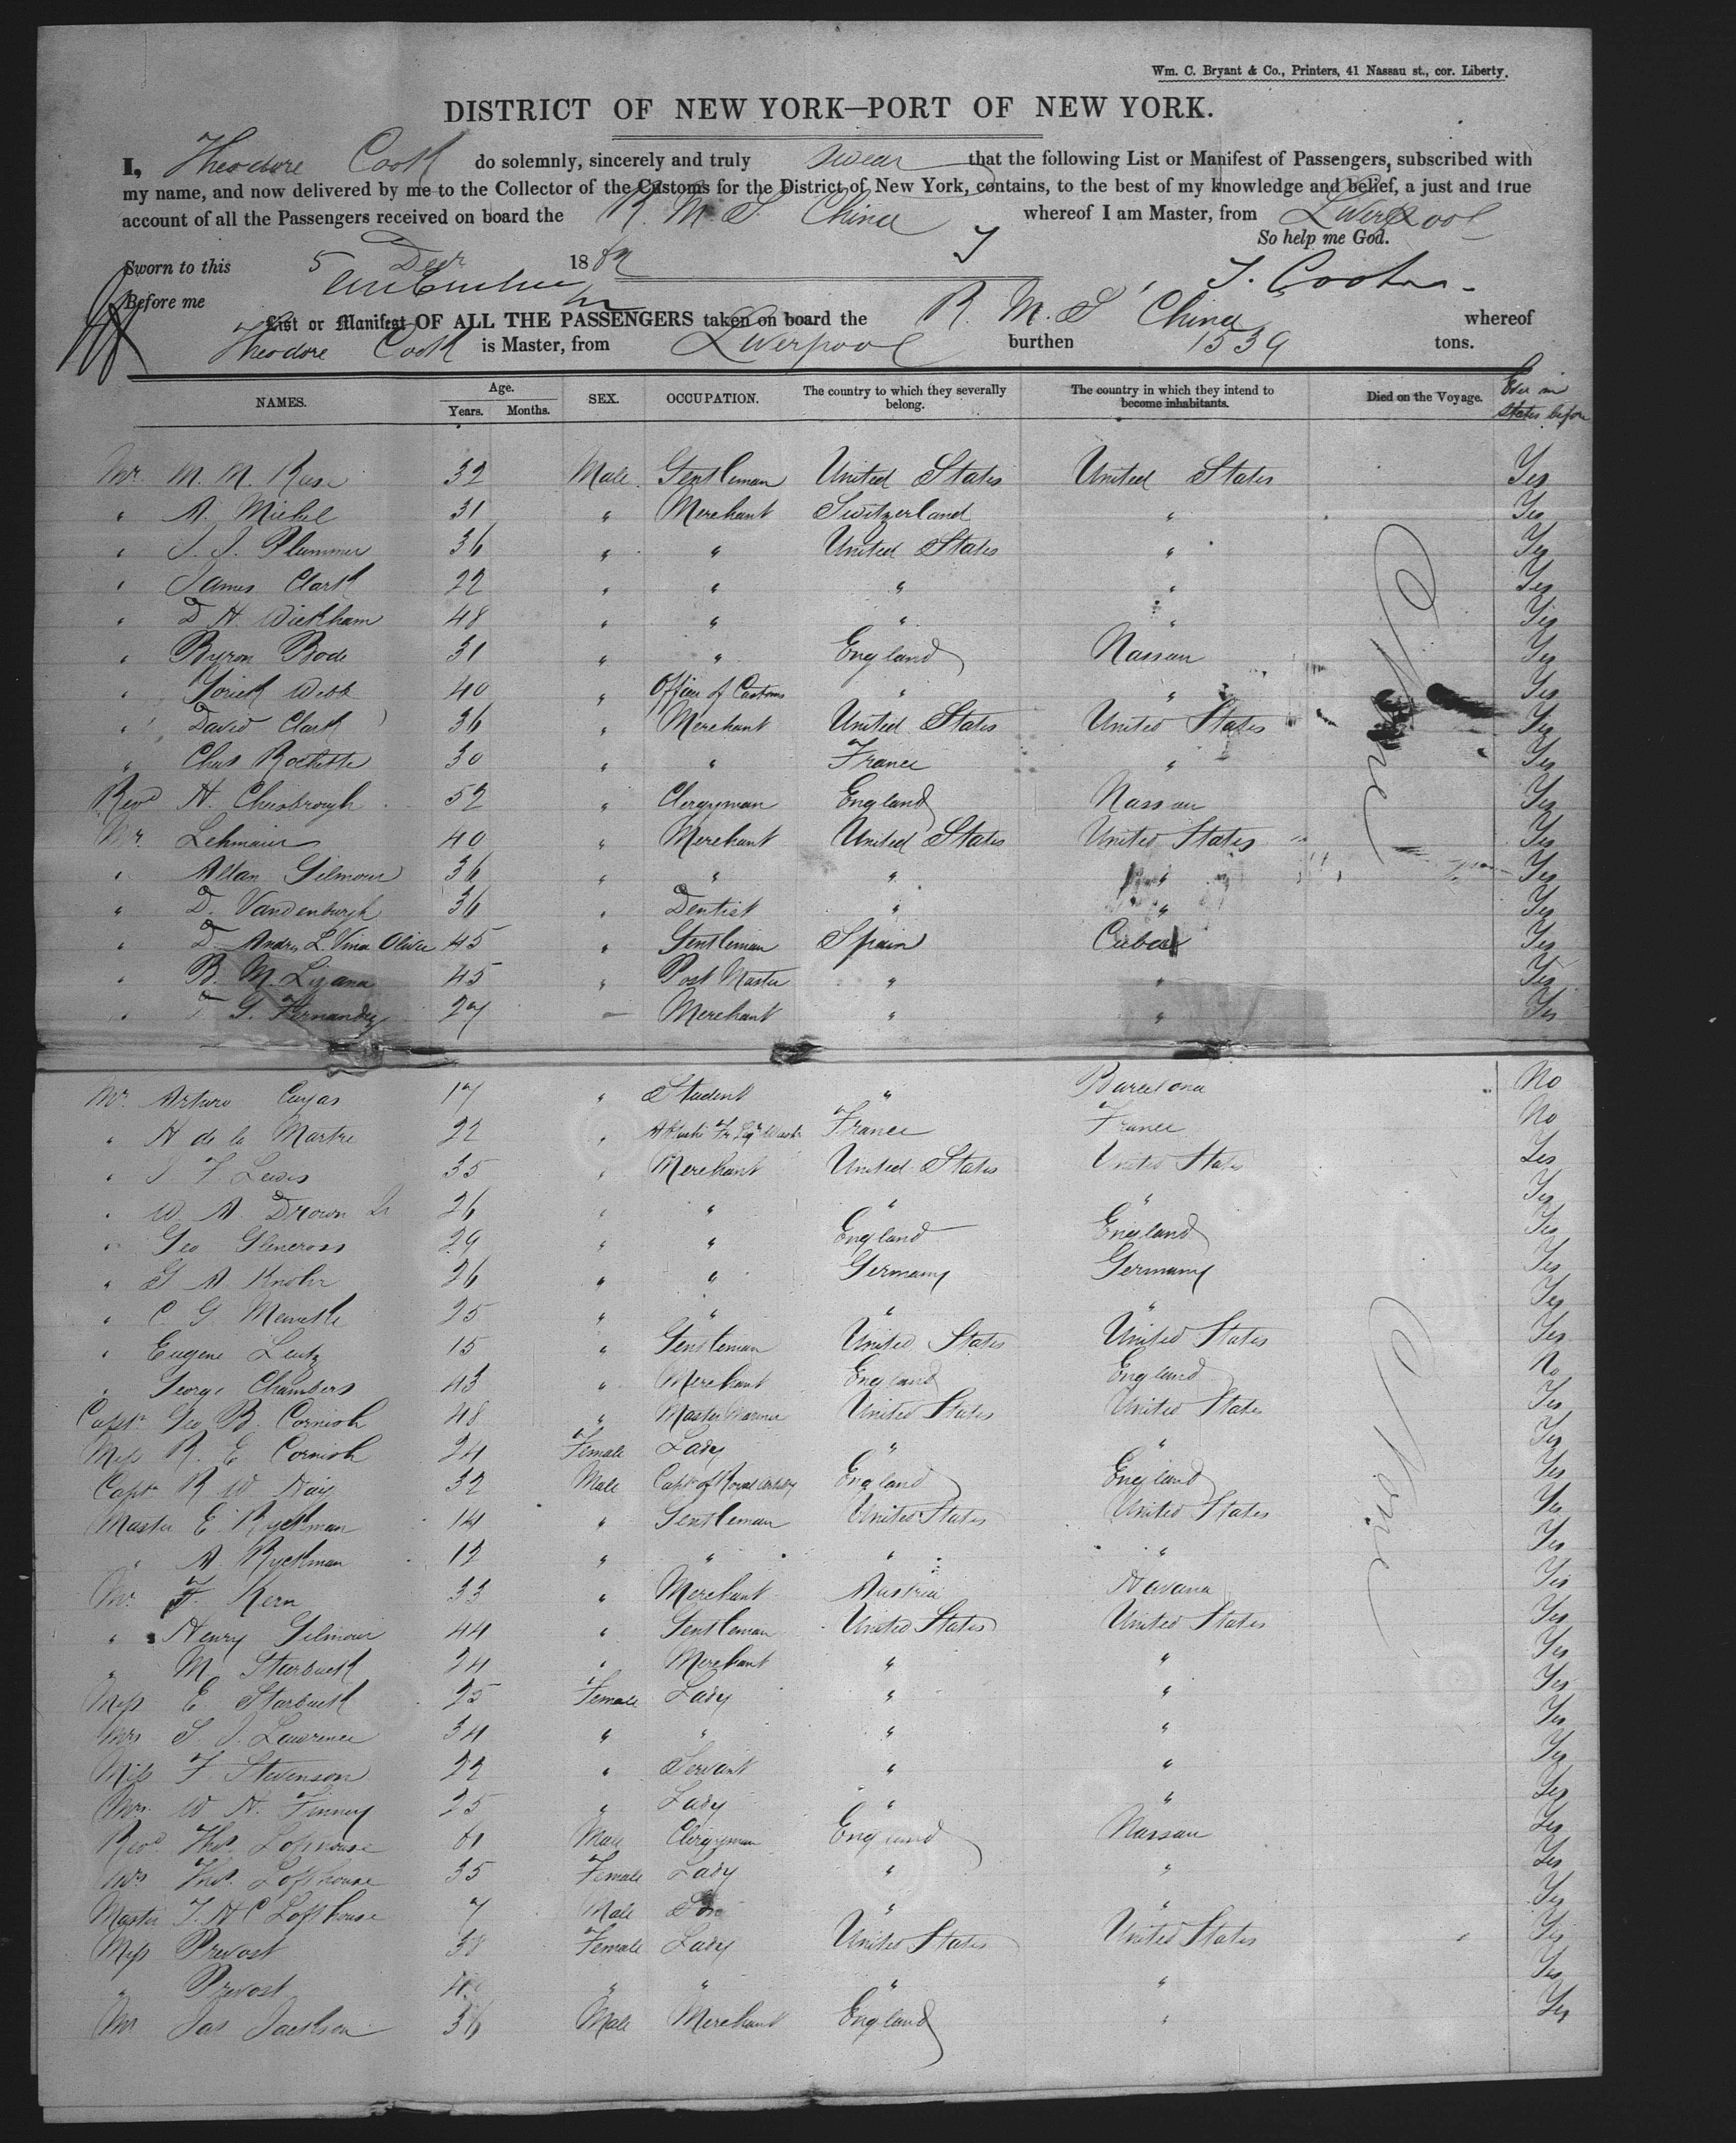 Wm. C. Bryant & Co., Printers, 41 Nassau st., cor. Liberty.
DISTRICT OF NEW YORK—PORT OF NEW YORK.
I, Theodore Cook do solemnly, sincerely and truly swear that the following List or Manifest of Passengers, subscribed with
my name, and now delivered by me to the Collector of the Customs for the District of New York, contains, to the best of my knowledge and belief, a just and true
account of all the Passengers received on board the R. M. S. China whereof I am Master, from Liverpool
So help me God.
Sworn to this 5 Decr 18
T. Cook
Before me
List or Manifest OF ALL THE PASSENGERS taken on board the R. M. S China whereof
Theodore Cook is Master, from Liverpool burthen 1539 tons.
NAMES. Age. Years. Months. SEX. OCCUPATION. The country to which they severally belong. The country in which they intend to become inhabitants. Died on the Voyage. Ever in States before
Mr M. M. 32 Male Gentleman United States United States Yes
" A. Michel 31 " Merchant Switzerland " Yes
" J. J. Plummer 36 " " United States " Yes
" James Clark 22 " " " " Yes
" D. H. Wickham 48 " " " " Yes
" Byron Bode 31 " " England Nassau Yes
" Yorick Webb 40 " Officer of Customs " " Yes
" David Clark 36 " Merchant United States United States Yes
" Chas Rochette 30 " " France " Yes
Revd H. Chesbrough 52 " Clergyman England Nassau Yes
Mr. Lehmaier 40 " Merchant United States United States Yes
" Allan Gilmour 36 " " " " Yes
" D. Vandenburgh 36 " Dentist " " Yes
" D. Andres L. Vina Oliver 45 " Gentleman Spain Cuba Yes
" B. M. Lizana 45 " Post Master " " Yes
" G. Fernandez 27 Merchant " " Yes
Mr Arturo Cuyas 17 " Student " Barcelona No
" H de la Martre 22 " France France No
" J. F. Lewis 35 " Merchant United States United States Yes
" W. A. Drown Jr 26 " " " " Yes
" Geo Glencross 29 " " England England Yes
" G A Knohr 26 " " Germany Germany Yes
" C. G. 25 " " " " Yes
" Eugene Lentz 15 " Gentleman United States United States Yes
" George Chambers 43 " Merchant England England No
Captn Geo B. Cornish 48 " Master Mariner United States United States Yes
Miss R. E. Cornish 24 Female Lady " " Yes
Captn R W Haig 32 Male Captn of Royal Artillery England England Yes
Master E. Ryckman 14 " Gentleman United States United States Yes
" A. Ryckman 12 " " " " Yes
Mr F. Kern 33 " Merchant Austria Havana Yes
" Henry Gilmour 44 " Gentleman United States United States Yes
" M Starbuck 24 " Merchant " " Yes
Miss E Starbuck 25 Female Lady " " Yes
Mrs S. J. Lawrence 34 " " " " Yes
Miss F. Stevenson 22 " Servant " " Yes
Mrs. W H. Finney 25 " Lady " " Yes
Revd Thos. Lofthouse Male Clergyman England Nassau Yes
Mrs Thos. Lofthouse 35 Female Lady " " Yes
Master T. H C Lofthouse 7 Male Son " " Yes
Miss Prevost 38 Female Lady United States United States Yes
" Prevost " " " " Yes
Mr Jas Jackson 36 Male Merchant England " Yes
None
None